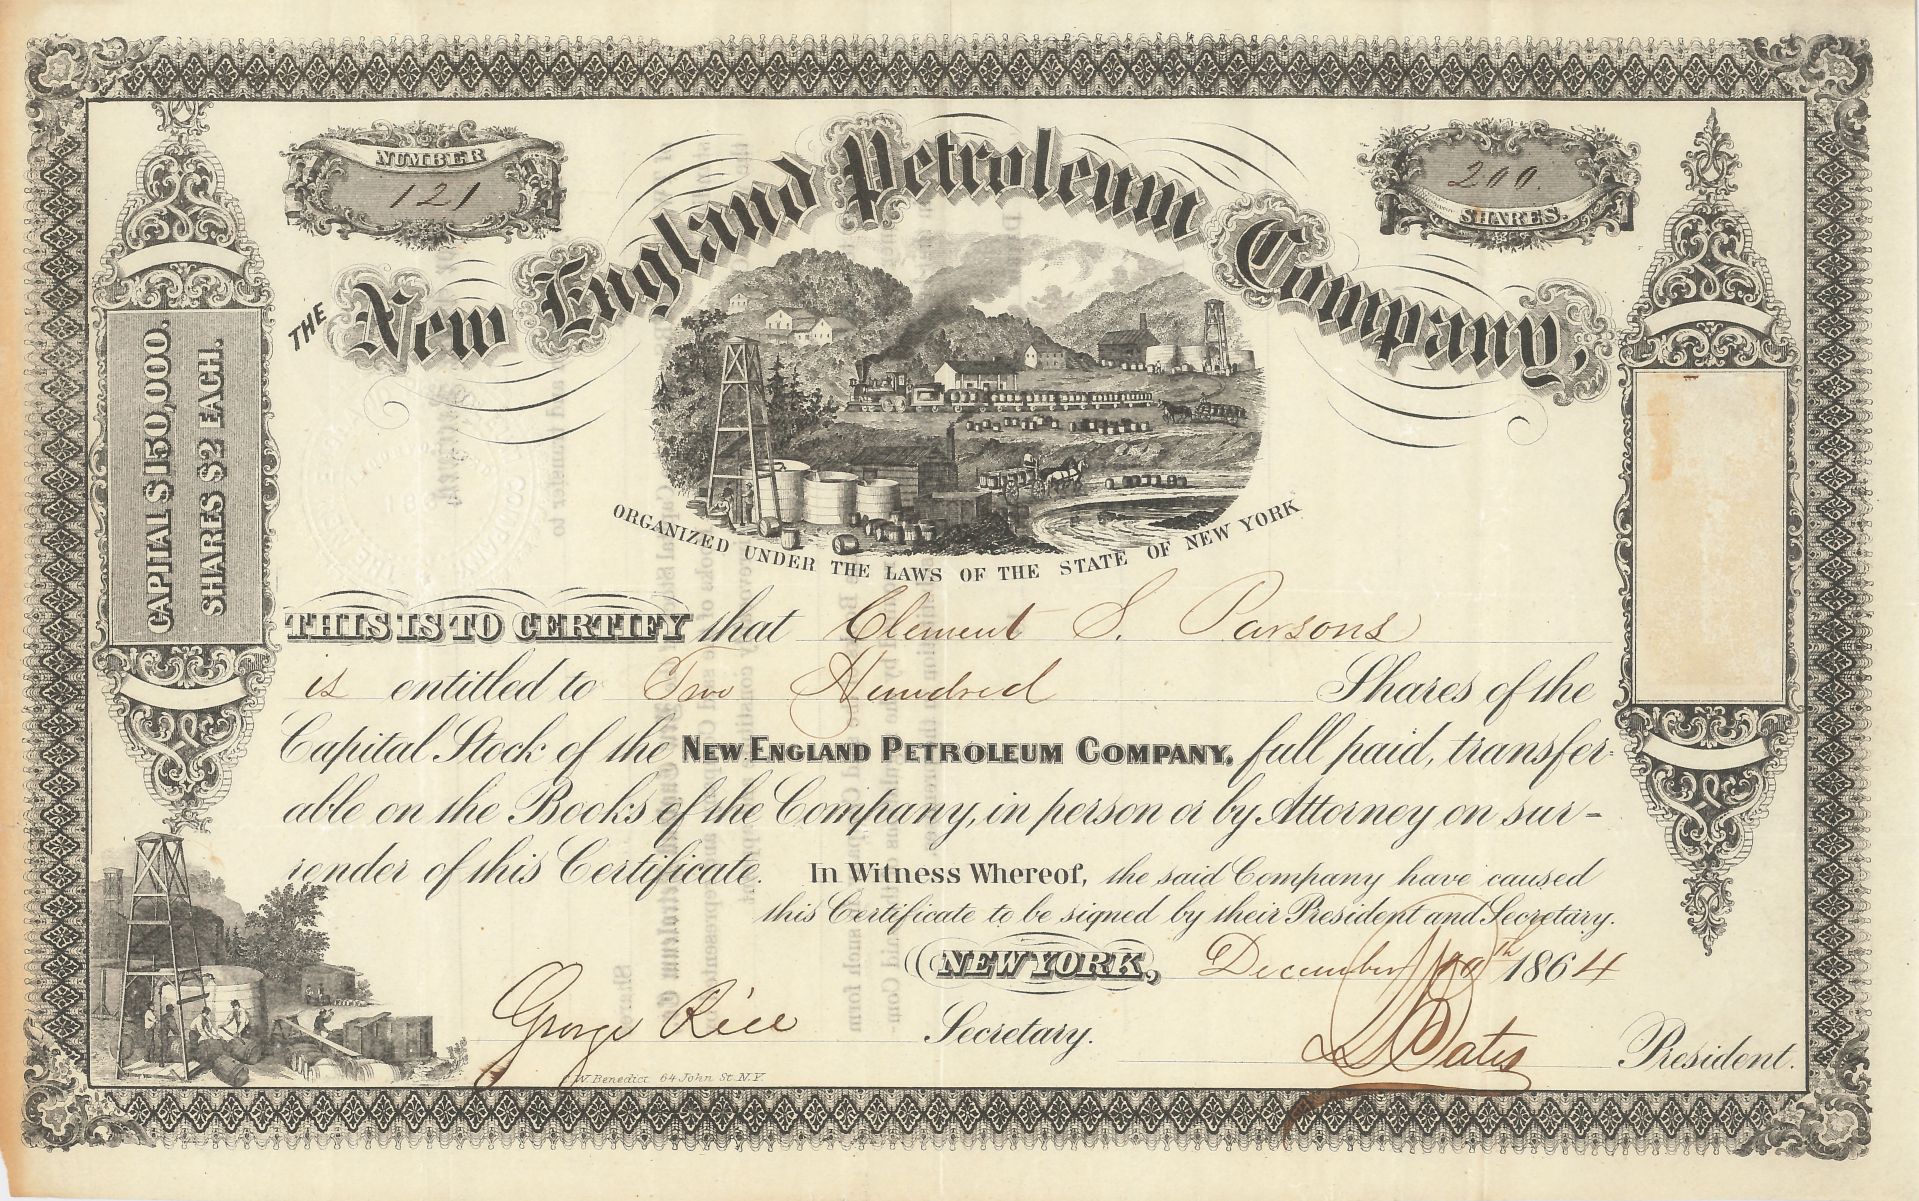 NUMBER
121
200.
SHARES.
THE New England Petroleum Company,
CAPITAL $150,000.
SHARES $2 EACH.
ORGANIZED UNDER THE LAWS OF THE STATE OF NEW YORK
THIS IS TO CERTIFY that Clement S. Parsons
is entitled to Two Hundred Shares of the
Capital Stock of the NEW ENGLAND PETROLEUM COMPANY, full paid, transfer-
able on the Books of the Company, in person or by Attorney on sur-
render of this Certificate. In Witness Whereof, the said Company have caused
this Certificate to be signed by their President and Secretary.
NEW YORK, December th 1864
George Rice Secretary.
Bates President.
W. Benedict 64 John St. N.Y.